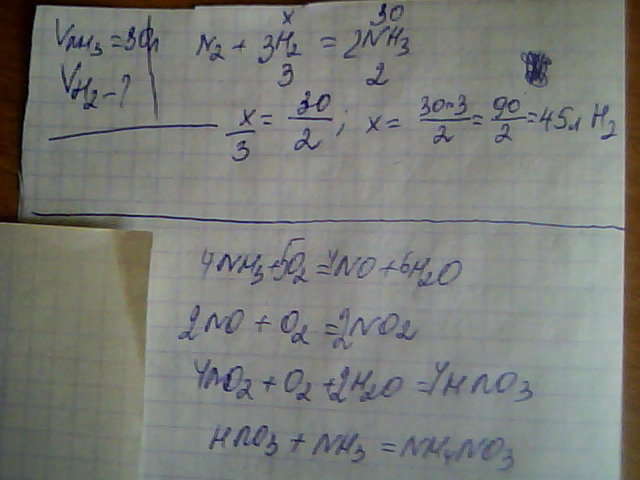 V NH3 = 30л
x 30
N2 + 3H2 = 2NH3
V H2 - ?
3 2
x/3 = 30/2 ; x = 30·3/2 = 90/2 = 45л H2
4NH3 + 5O2 = 4NO + 6H2O
2NO + O2 = 2NO2
4NO2 + O2 + 2H2O = 4HNO3
HNO3 + NH3 = NH4NO3